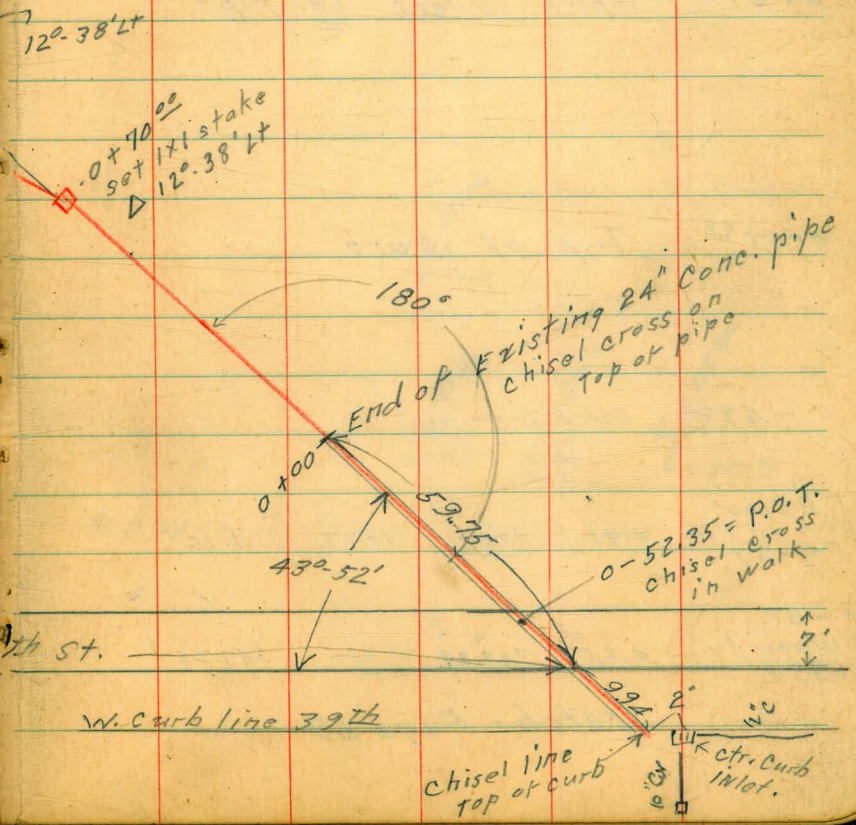 12°-38' Lt
0+70⁰⁰
set 1x1 stake
△ 12°-38' Lt
180°
End of Existing 24" Conc. pipe
chisel cross on
top of pipe
0+00
59.75
43°-52'
0-52.35 = P.O.T.
chisel cross
in walk
7'
th St.
9.94
2'
W. Curb line 39th
12"C
ctr. curb
inlet.
chisel line
Top of curb